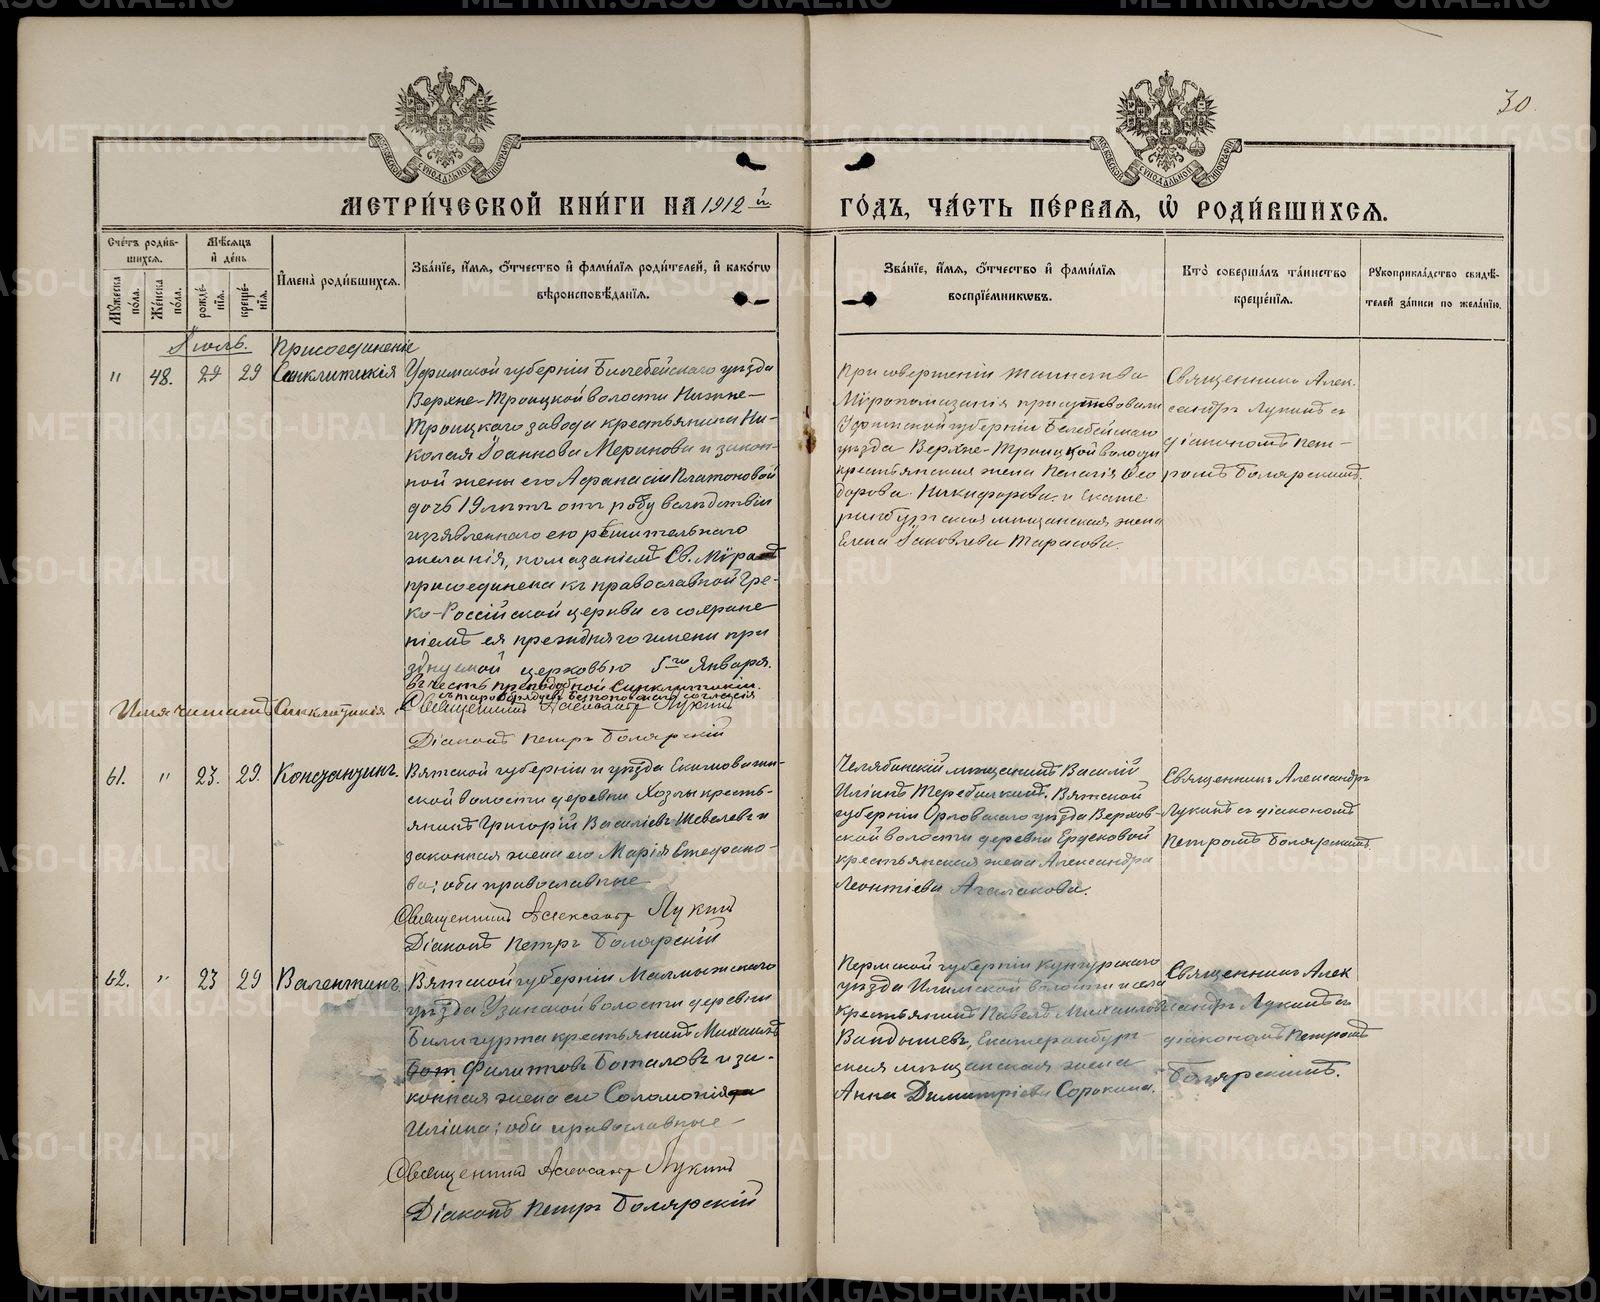 30
МЕТРИ́ЧЕСКОЙ КНИ́ГИ НА 1912 й.
ГО́ДЪ, ЧА́СТЬ ПЕ́РВАЯ, Ѡ҆ РОДИ́ВШИХСЯ.
Сче́тъ роди́в-
шихся.
Мѣ́сяцъ
и҆ де́нь
Му́жеска
по́ла.
Же́нска
по́ла.
рожде́-
нїя.
креще́-
нїя.
И҆мена̀ роди́вшихся.
Зва́нїе, и҆́мя, ѻ҆́тчество и҆ фами́лїя роди́телей, и҆ како́гѡ
вѣроисповѣ́данїя.
Зва́нїе, и҆́мя, ѻ҆́тчество и҆ фами́лїя
воспрїе́мникѡвъ.
Кто̀ соверша́лъ та́инство
креще́нїя.
Рꙋкоприкла́дство свидѣ́-
телей за́писи по жела́нїю.
Іюль.
Присоединеніе
" 48. 29 29 Синклитикія
Уфимской губерніи Билебейскаго уѣзда
Верхне-Троицкой волости Нижне-
Троицкаго завода крестьянина Ни-
колая Іоаннова Меринова и закон-
ной жены его Афанасіи Платоновой
дочь 19 лѣтъ отъ роду вслѣдствіи
изъявленнаго ею рѣшительнаго
желанія, помазаніемъ Св. Мѵра
присоединена къ православной Гре-
ко-Россійской церкви съ сохране
ніемъ ея прежняго имени при
зднуемой церковью 5го Января.
въ честь преподобной Синклитикіи.
старообрядцевъ безпоповскаго согласія
Имя читать Синклитикія.
Священникъ Александръ Лукинъ
Діаконъ Петръ Боярскій
При совершеніи таинства
Мѵропомазанія присутствовали
Уфимской губерніи Белебейскаго
уѣзда Верхне-Троицкой волости
крестьянская жена Пелагія Ѳео
дорова Никифорова и Екате
ринбургская мѣщанская жена
Елена Іаковлева Тарасова.
Священникъ Алек.
сандръ Лукинъ съ
діакономъ Пет-
ромъ Боярскимъ.
61. " 23. 29. Константинъ.
Вятской губерніи и уѣзда
ской волости деревни Хозлы кресть-
янинъ Григорій Василіевъ Шевелевъ и
законная жена его Марія Стефано-
ва; оба православные
Священникъ Александръ Лукинъ
Діаконъ Петръ Боярскій
Челябинскій мѣщанинъ Василій
Иліинъ Теребицкій. Вятской
губерніи Орловскаго уѣзда Верхов-
ской волости деревни
крестьянская жена Александра
Леонтіева Агалакова.
Священникъ Александръ
Лукинъ съ діакономъ
Петромъ Боярскимъ.
62. " 23 29 Валентинъ.
Вятской губерніи Малмыжскаго
уѣзда Узинской волости деревни
Билигурта крестьянинъ Михаилъ
Бот Филиповъ Боталовъ и за-
конная жена его Соломонія
Иліина; оба православные
Священникъ Александръ Лукинъ
Діаконъ Петръ Боярскій
Пермской губерніи Кунгурскаго
уѣзда Илимской волости и села
крестьянинъ Павелъ Михаиловъ
Вандышевъ, Екатеринбург-
ская мѣщанская жена
Анна Димитріева Сорокина.
Священникъ Алек
сандръ Лукинъ съ
діакономъ Петромъ
Боярскимъ.
METRIKI.GASO-URAL.RU